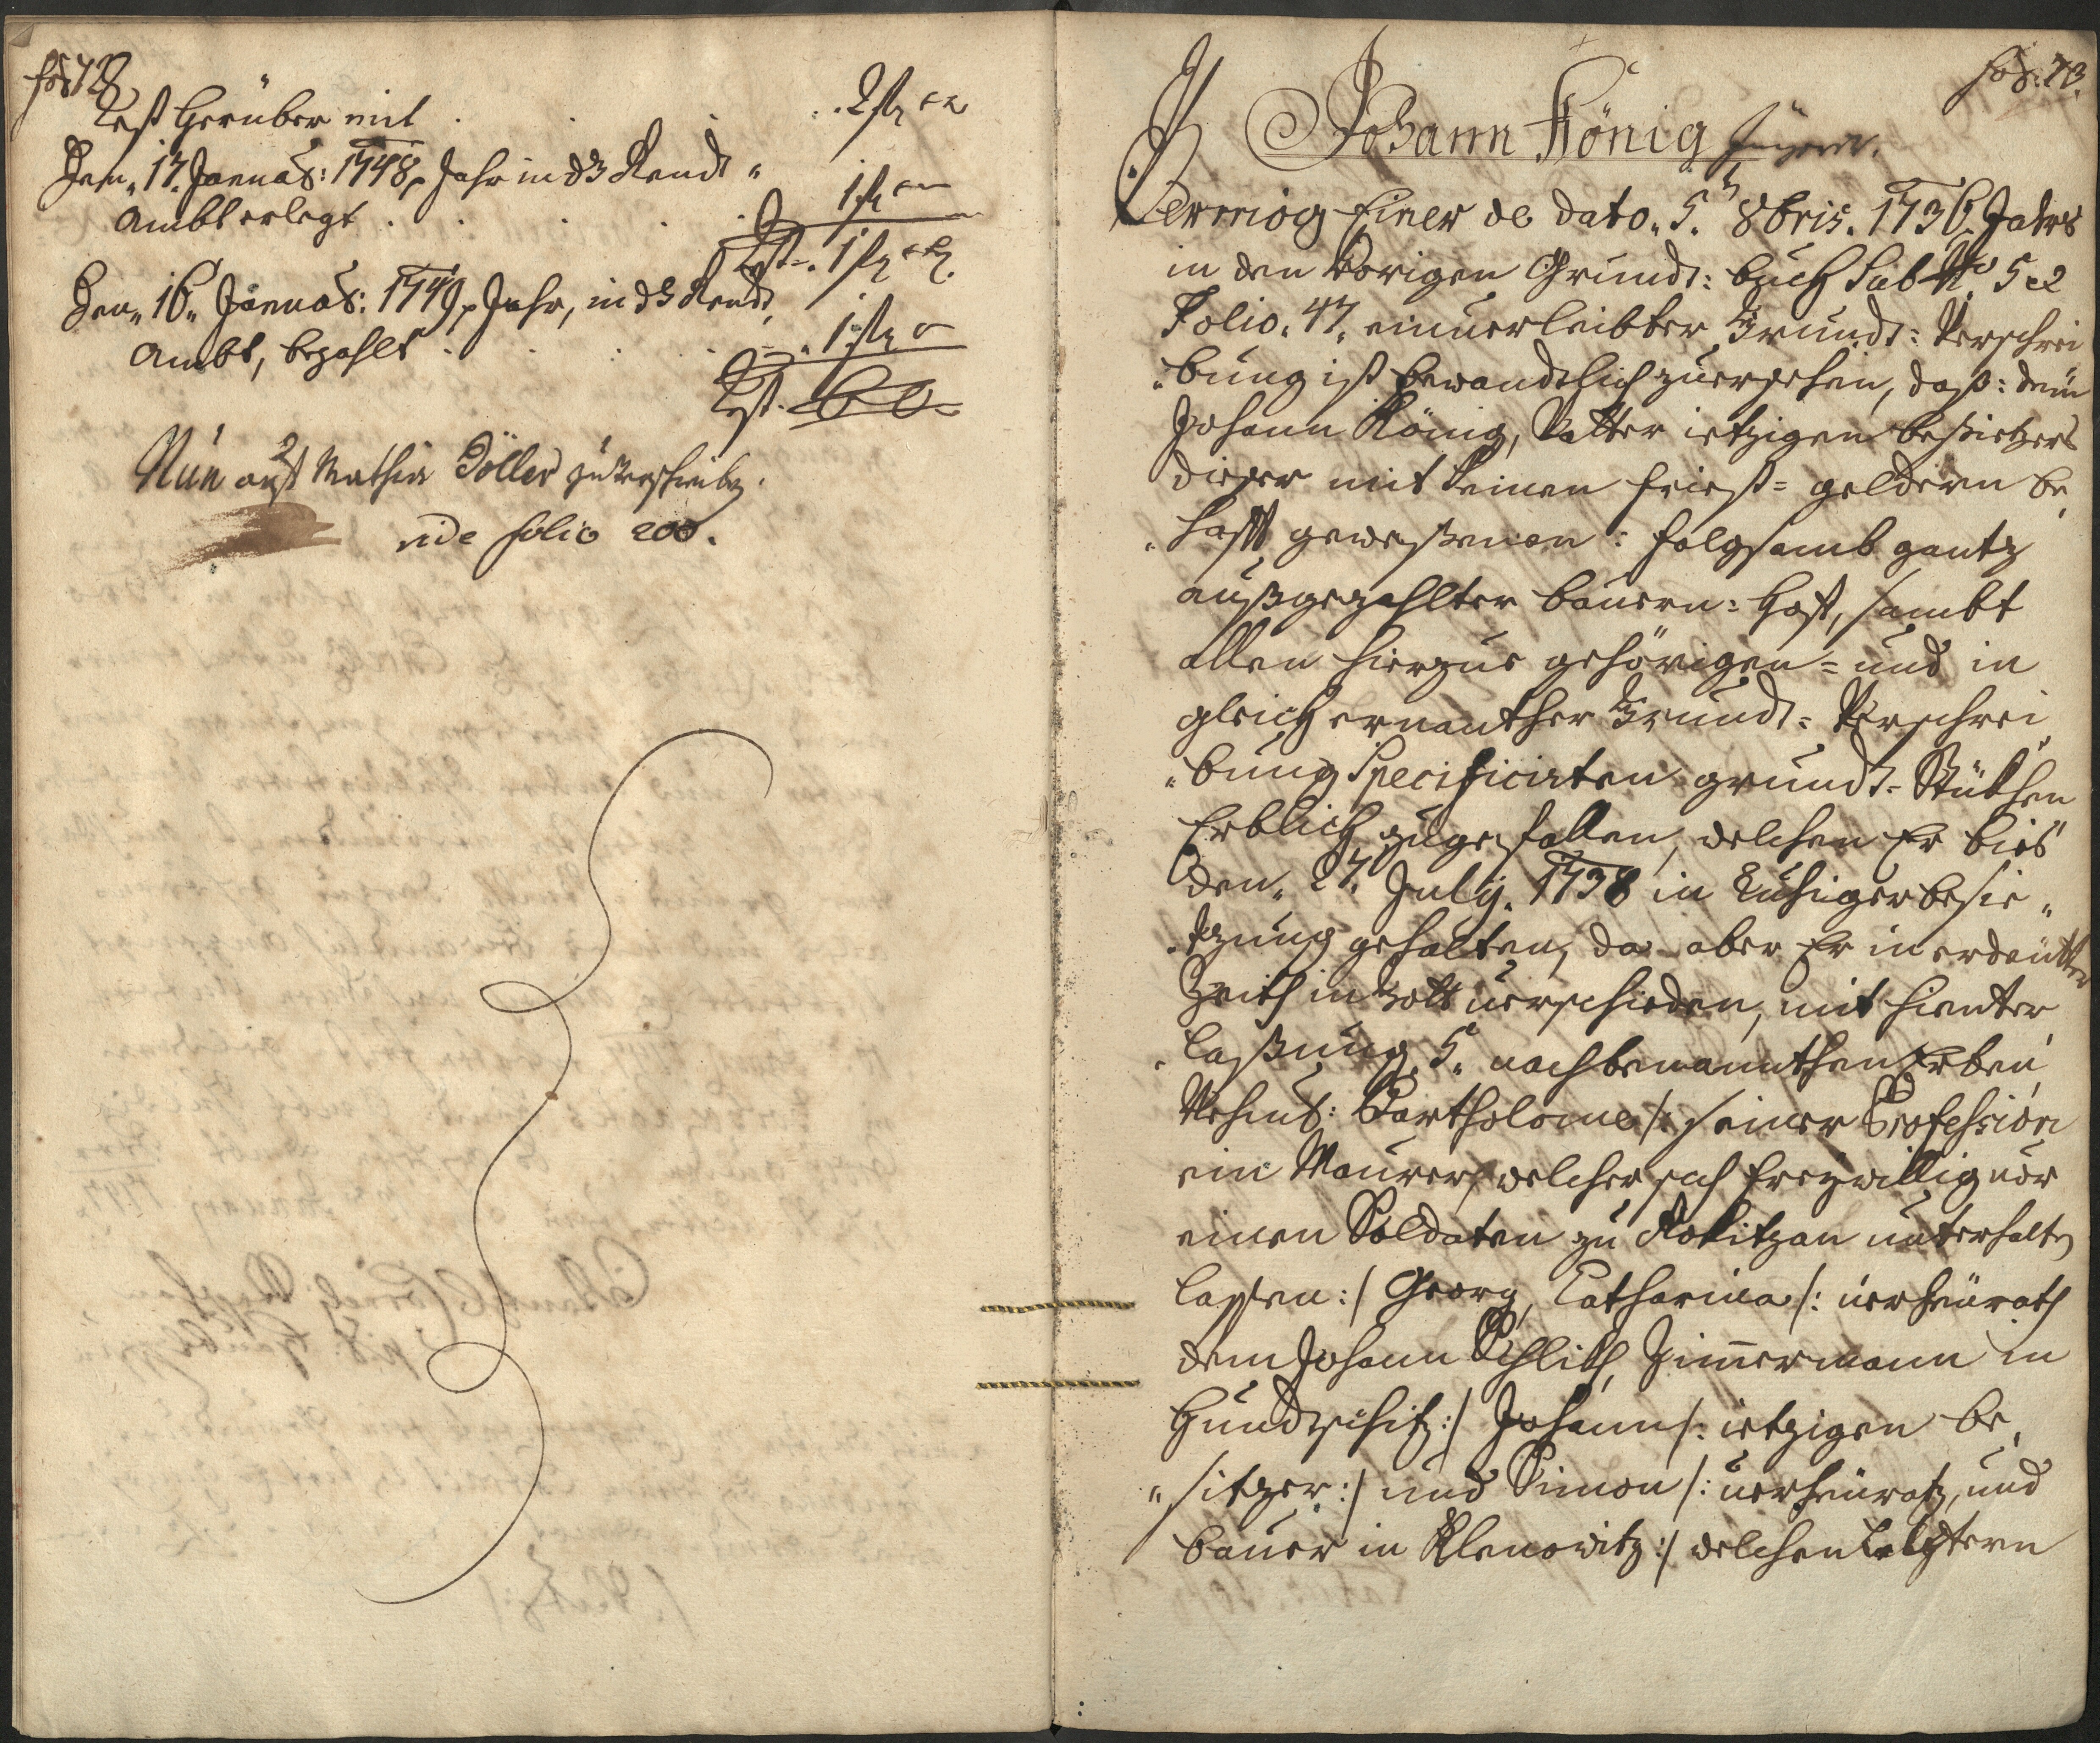 fol: 72
Rest herüber mit . . . 2 ß
Den „17. Januar: 1748 p Jahr in dß Rendt „
Ambt erlegt . . . . . 1 ß
Rst. 1 ß
Den „16„ Januar: 1749 p Jahr, in dß Rendt,
Ambt, bezahlt . . . . 1 ß
Rst.
Nun auf Mathia Döller zu verschreiben.
vide folio 200.
fol: 73.
Johann König Jüngere.
Vermög Einer de dato „5t 8bris. 1736. Jahrs
in den Vorigen Grundt: buch Sub No 52
Folio. 47. einverleibter Grundt: Verschrei
„bung ist bewandtlich zuersehen, daß: dem
Johann König, Vatter ietzigen besietzers
dieser mit keinen Friest= geldern be„
„hafft geweßenen: folgsamb gantz
außgezahlter Bauern= Hoff, sambt
allen hierzue gehörigen= und in
gleich ernanther Grundt= Verschrei„
„bung Specificirten grundt= Stükhen
Erblich zugefallen, welchen Er bies
den „27. July. 1738 in Ruhiger besie„
„tzung gehalten, da aber Er in erdeütter
Zeith in Gott verschieden, mit hienter
„laßung 5. nachbenannthen Erben,
Nehmb: Bartholome /: seiner Profession
ein Maurer, welcher sich freywillig vor
einen Soldaten zu Rokitzan unterhalten
lassen :/ Georg, Catharina /: verheürath
dem Johann Schlith, Zimmermann in
Hundschitz :/ Johann /: ietzigen be„
„sitzer :/ und Simon /: verheürath, und
bauer in Klenowitz :/ welchen Letztern